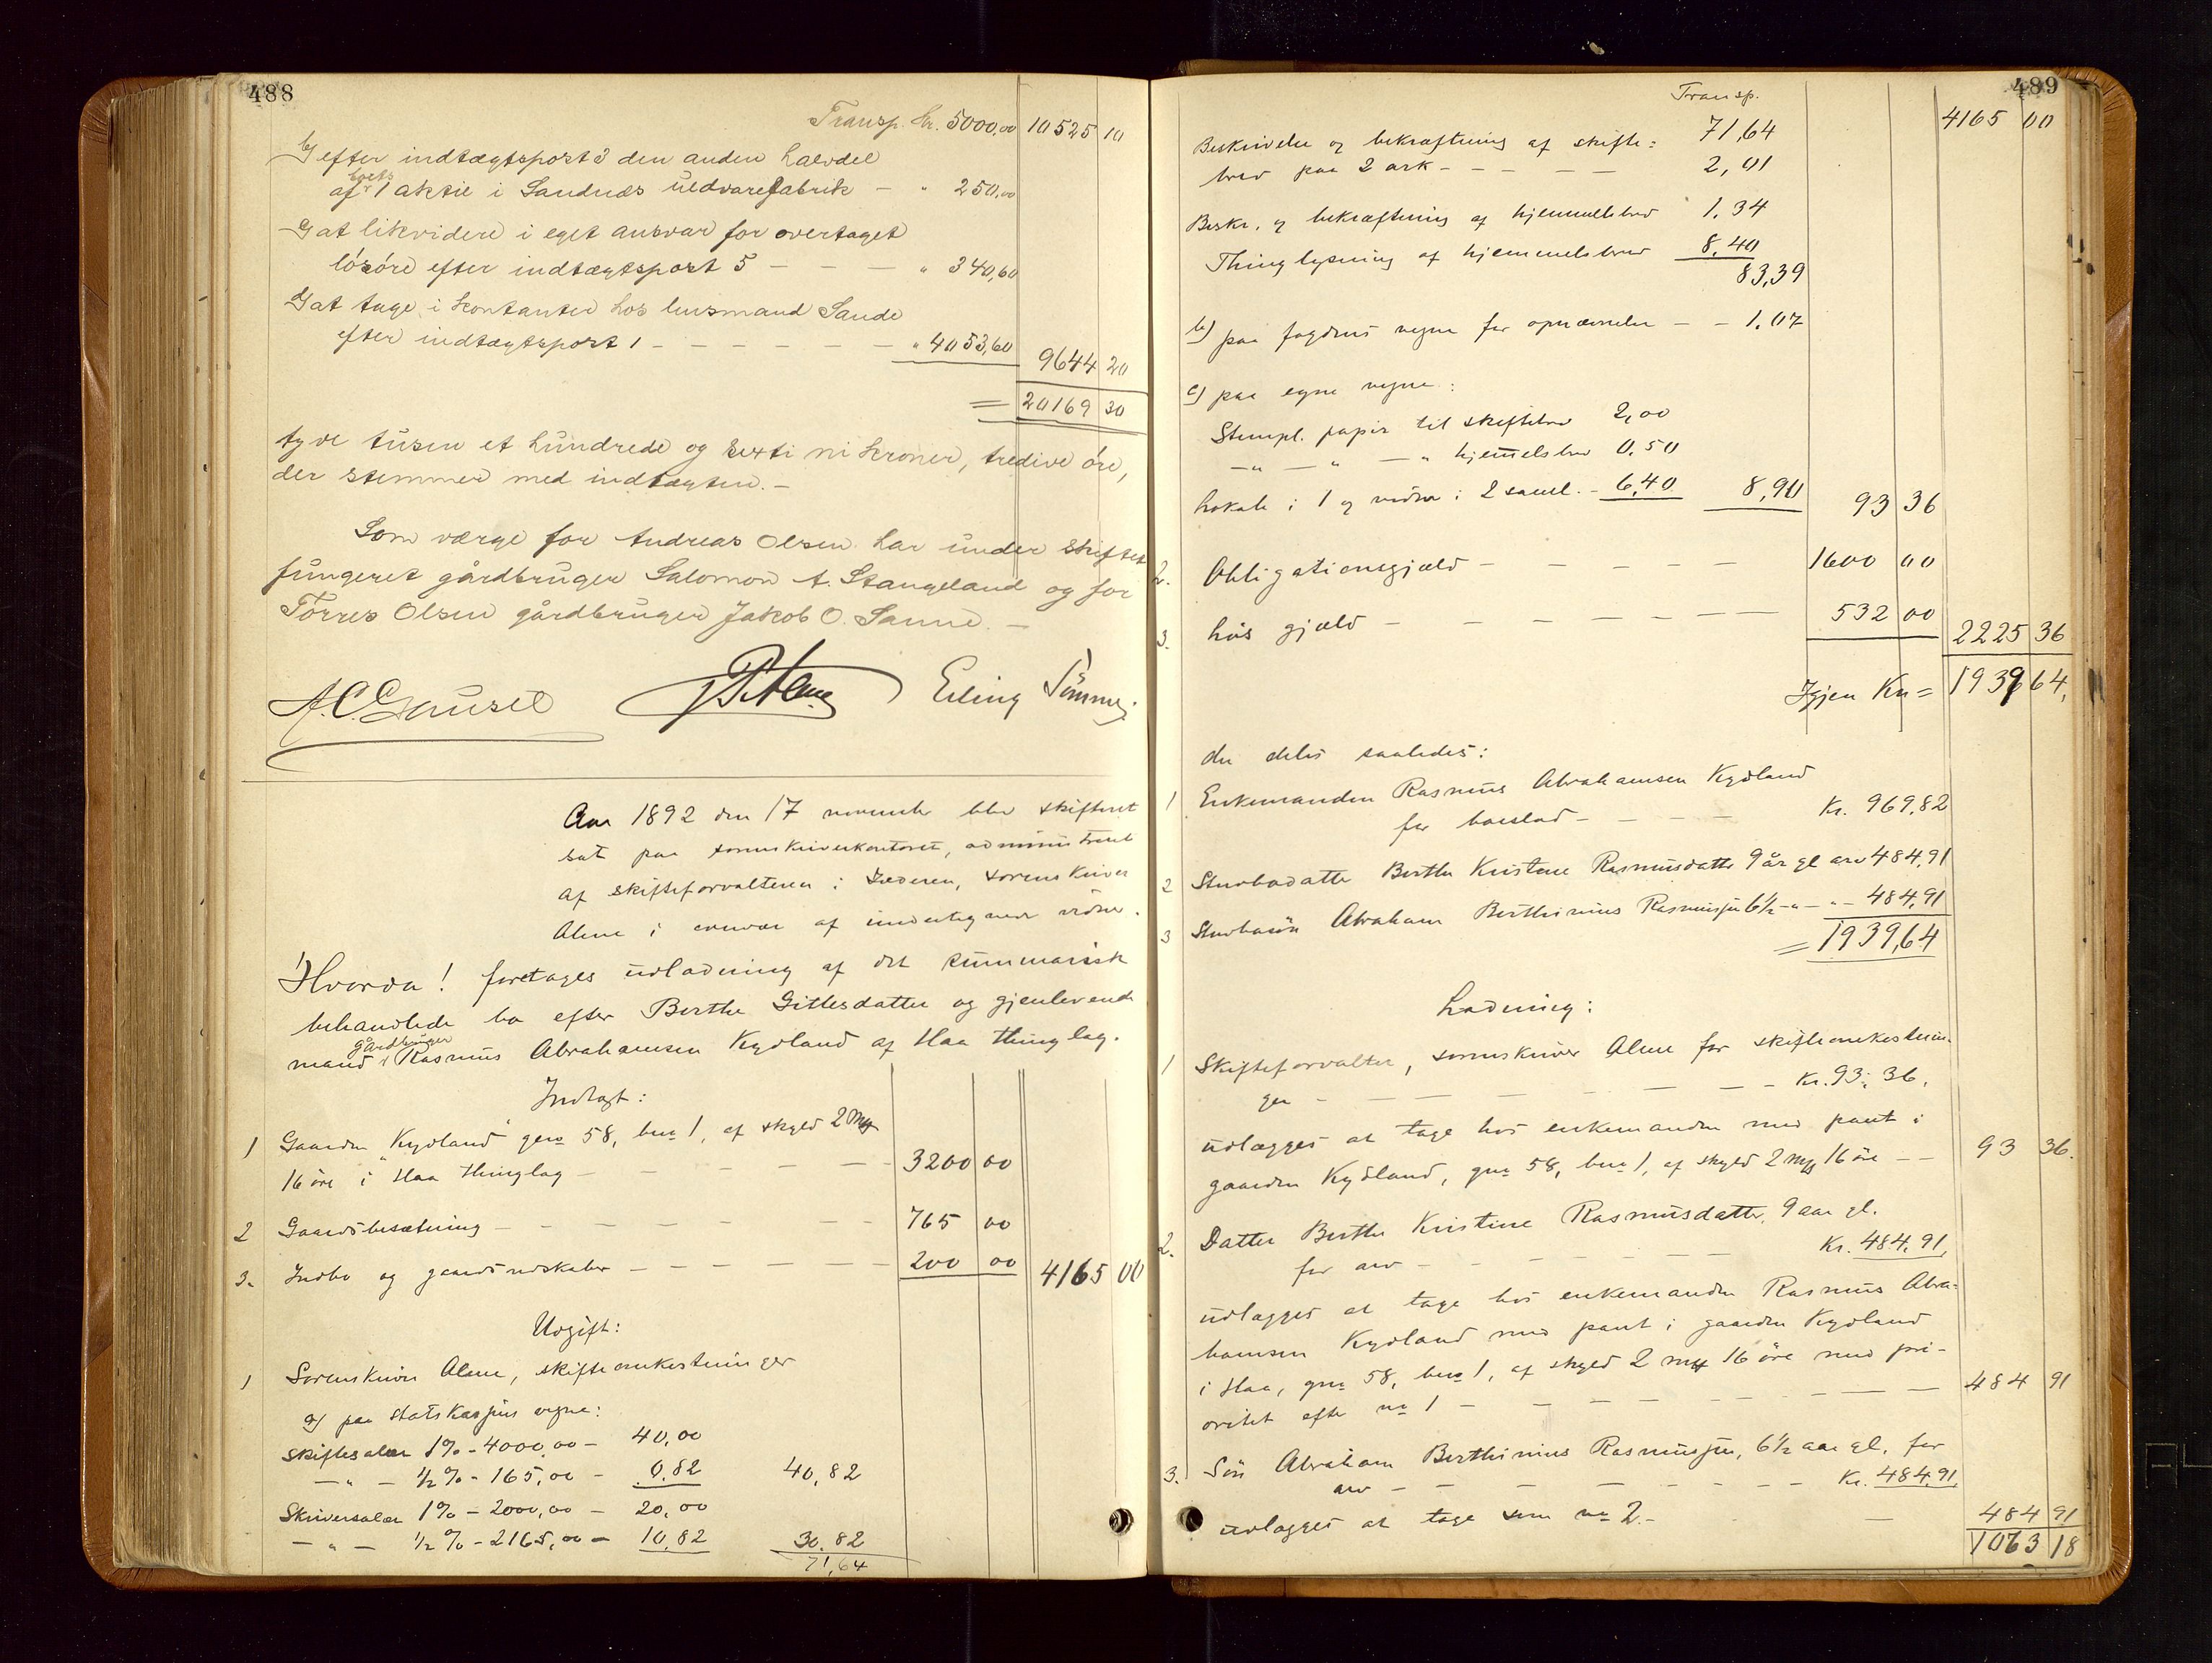 488
Transp. kr. 5000,00 10525 10
b) efter indtægtspost 3 den anden halvdel
af boets 1 aktie i Sandnæs uldvarefabrik — " 250,00
c) at likvidere i eget ansvar for overtaget
lösöre efter indtægtspost 5 — — — " 340,60
d) at tage i kontanter hos husmand Sande
efter indtægtspost 1 — — — — — — " 4053,60 9644 20
= 20169 30
tyve tusen et hundrede og sexti ni kroner, tredive öre,
der stemmer med indtægten. —
Som værge for Andreas Olsen har under skiftet
fungeret gårdbruger Salomon A. Stangeland og for
Törres Olsen gårdbruger Jakob O. Sanne. —
A. C. Gausel Erling Sömme
Aar 1892 den 17 november blev skifteret
sat paa sorenskriverkontoret, administreret
af skifteforvalteren i Jæderen, sorenskriver
Alme i overvær af undertegnede vidner.
Hvorda! foretages udlodning af det summarisk
behandlede bo efter Berthe Gittlesdatter og gjenlevende
mand gårdbruger Rasmus Abrahamsen Kydland af Haa thinglag.
Indtægt:
1 Gaarden "Kydland" gno 58, bno 1, af skyld 2 mrk
16 öre i Haa thinglag — — — — — 3200 00
2 Gaardsbesætning — — — — — — 765 00
3. Indbo og gaardsredskaber — — — — — — 200 00 4165 00
Udgift:
1 Sorenskriver Alme, skifteomkostninger
a) paa statskassens vegne:
Skiftesalær 1% - 4000,00 — 40,00
— " — ½ % - 165,00 — 0,82 40,82
Skriversalær 1% - 2000,00 — 20,00
— " — ½ % - 2165,00 — 10,82 30,82
71,64
489
Transp. 4165 00
71,64
Beskrivelse og bekræftning af skifte=
brev paa 2 ark — — — — — 2,01
Beskr. og bekræftning af hjemmelsbrev 1,34
Thinglysning af hjemmelsbrev 8,40
83,39
b) paa fogdens vegne for opnævnelse — — 1,07
c) paa egne vegne:
Stempl. papir til skiftebrev 2,00
— " — " — " hjemmelsbrev 0,50
Lokale i 1 og vidner i 2 saml. — 6,40 8,90 93 36
2. Obligationsgjæld — — — — — 1600 00
3. Lös gjæld — — — — — — 532 00 2225 36
Igjen Kr = 1939 64,
der deles saaledes:
1 Enkemanden Rasmus Abrahamsen Kydland
for boeslod — — — — Kr. 969,82
2 Stervbodatter Berthe Kristine Rasmusdatter 9 år gl arv 484,91
3 Stervbosön Abraham Berthinius Rasmussen 6½ — " — " — 484,91
= 1939,64
Lodning:
1 Skifteforvalter, sorenskriver Alme for skifteomkostnin-
ger — — — — — — — — Kr. 93,36.
udlægges at tage hos enkemanden med pant i
gaarden Kydland, gno 58, bno 1, af skyld 2 mrk 16 öre — — 93 36.
2. Datter Berthe Kristine Rasmusdatter, 9 aar gl.
for arv — — — — — — Kr. 484,91,
udlægges at tage hos enkemanden Rasmus Abra-
hamsen Kydland med pant i gaarden Kydland
i Haa, gno 58, bno 1, af skyld 2 mrk 16 öre med pri-
oritet efter no 1 — — — — — — — — 484 91
3. Sön Abraham Berthinius Rasmussen, 6½ aar gl. for
arv — — — — — — — Kr. 484,91,
udlægges at tage som no 2. — — 484 91
1063 18